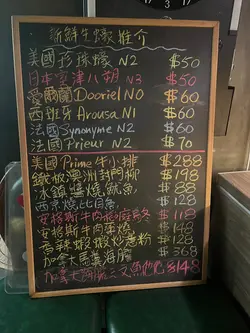 新鮮生蠔推介
美國珍珠蠔 N2 $50
日本 N3 $50
愛爾蘭 Dooriel N0 $60
西班牙 Arousa N1 $60
法國 Synonyme N2 $60
法國 Prieur N2 $70
美國Prime牛小排 $288
鐵板澳洲封門柳 $198
冰鎮 燒魷魚 $88
西京燒比目魚 $128
安格斯牛肉 $118
安格斯牛肉 $148
蝦炒意粉 $128
加拿大 海膽 $368
加拿大 三文魚 $148